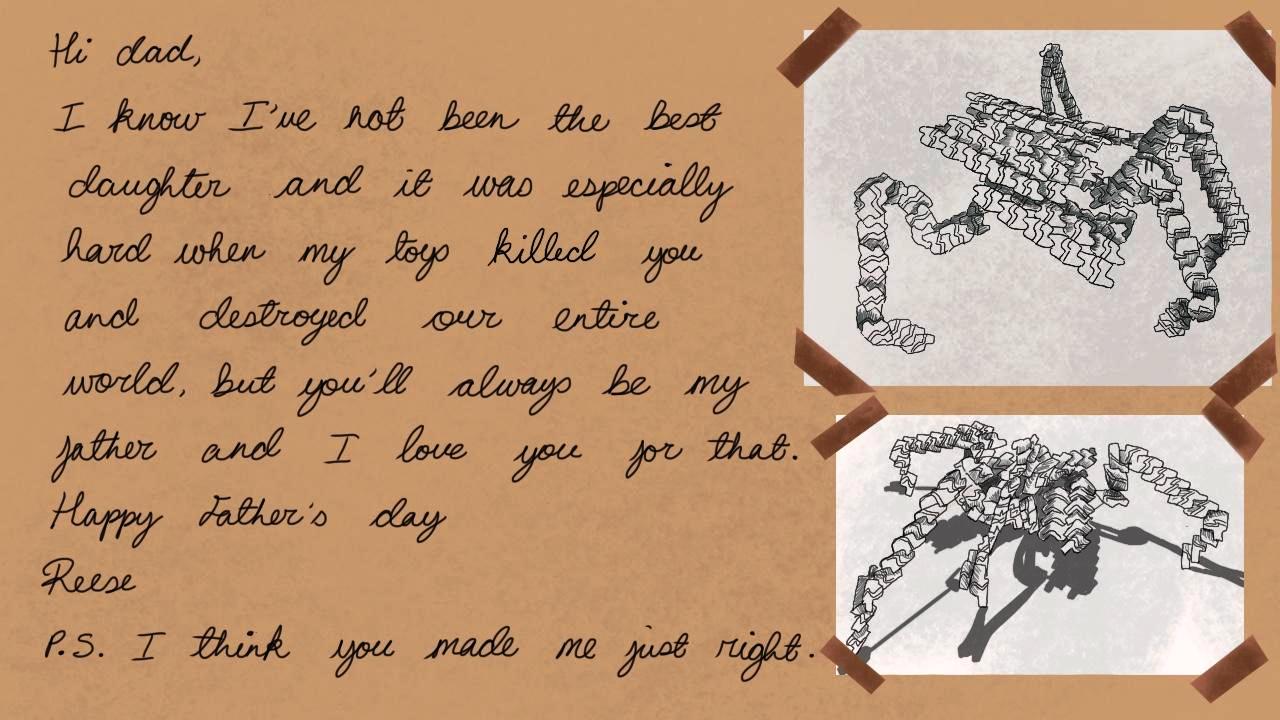 Hi dad,
I know I've not been the best
daughter and it was especially
hard when my toys killed you
and destroyed our entire
world, but you'll always be my
father and I love you for that.
Happy Father's day
Reese
P.S. I think you made me just right.